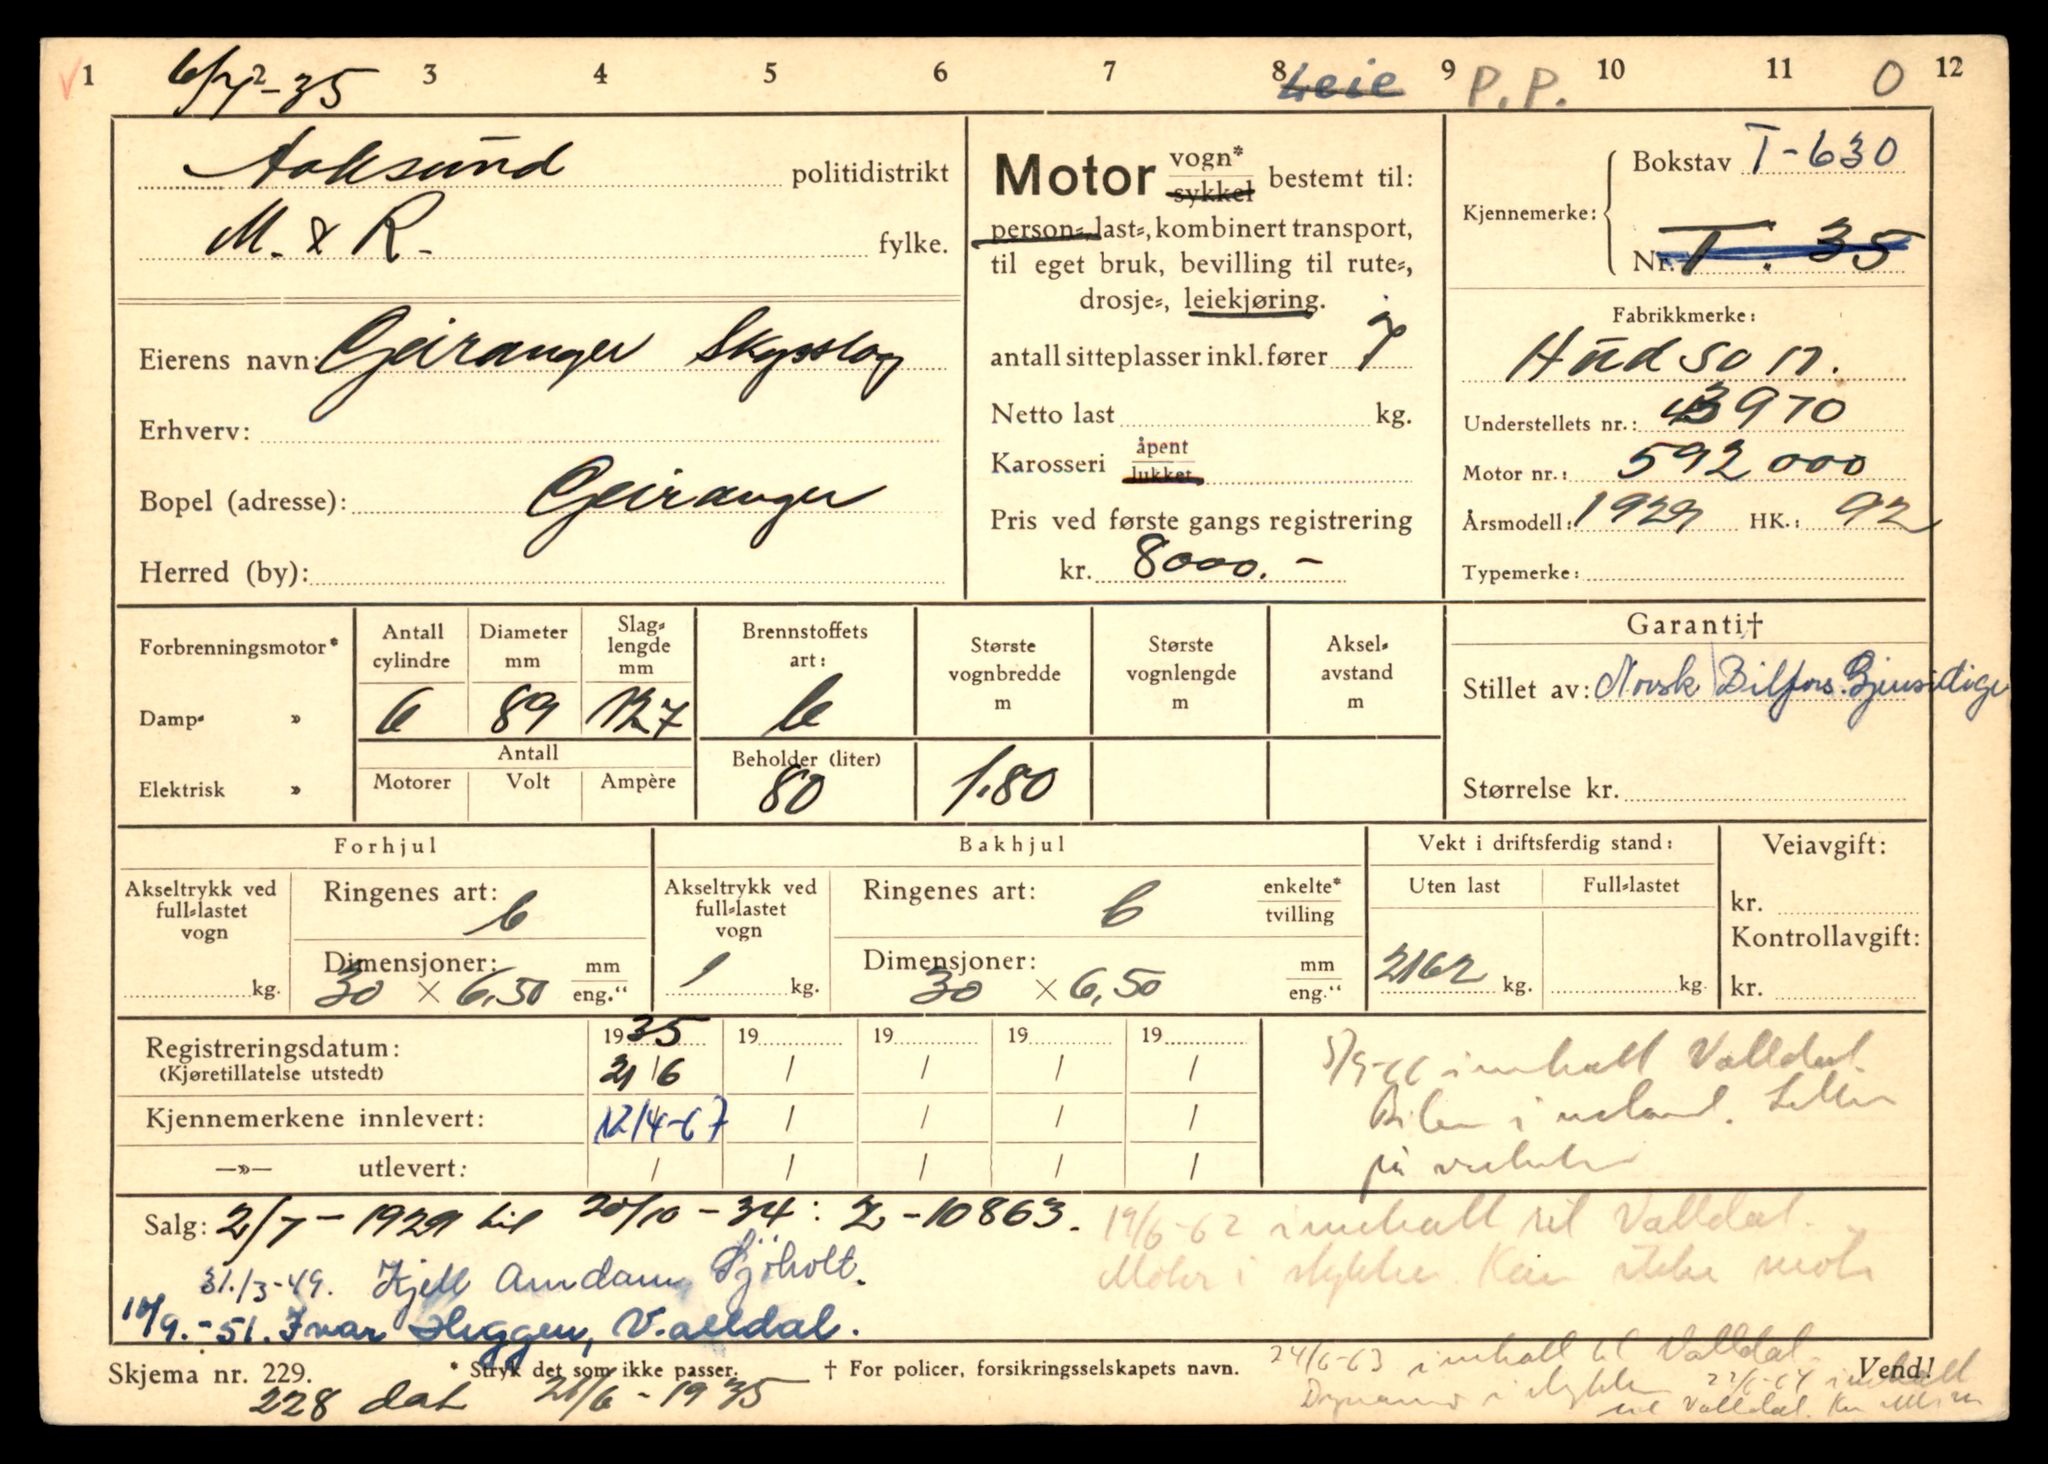 1 2 3 4 5 6 7 8 9 10 11 12
6/7-35 Leie P.P. O
Aalesund politidistrikt
M. & R. fylke.
Eierens navn: Geiranger Skysslag
Erhverv:
Bopel (adresse): Geiranger
Herred (by):
Motor vogn* sykkel bestemt til:
person-, last-, kombinert transport,
til eget bruk, bevilling til rute-,
drosje-, leiekjøring.
antall sitteplasser inkl. fører 7
Netto last kg.
Karosseri åpent lukket
Pris ved første gangs registrering
kr. 8000.-
Kjennemerke: Bokstav T-630
Nr. T. 35
Fabrikkmerke:
Hudson.
Understellets nr.: 43970
Motor nr.: 592000
Årsmodell: 1929 HK.: 92
Typemerke:
Forbrenningsmotor*
Damp- »
Elektrisk »
Antall cylindre
6
Diameter mm
89
Slag-lengde mm
127
Antall
Motorer Volt Ampère
Brennstoffets art:
b
Beholder (liter)
80
Største vognbredde m
1.80
Største vognlengde m
Aksel-avstand m
Garanti†
Stillet av: Norsk Bilfors. Gjensidige
Størrelse kr.
Forhjul
Akseltrykk ved full-lastet vogn
kg.
Ringenes art: b
Dimensjoner: 30 × 6,50 mm eng."
Bakhjul
Akseltrykk ved full-lastet vogn
/ kg.
Ringenes art: b enkelte* tvilling
Dimensjoner: 30 × 6,50 mm eng."
Vekt i driftsferdig stand:
Uten last Full-lastet
2162 kg. kg.
Veiavgift:
kr.
Kontrollavgift:
kr.
Registreringsdatum: 1935 19 19 19 19
(Kjøretillatelse utstedt) 21/6 / / / /
Kjennemerkene innlevert: 12/4-67 / / / /
—»— utlevert: / / / / /
5/9-66 innkalt Valldal.
Bilen i utland.
på
Salg: 2/7-1929 til 20/10-34: Z-10863.
31./3-49. Kjell Amdam, Sjøholt.
10/9.-51. Ivar Heggen, Valldal.
19/6-62 innkalt til Valldal.
Motor i stykker. Kan ikke møte
Skjema nr. 229. * Stryk det som ikke passer. † For policer, forsikringsselskapets navn. Vend!
228 dat 21/6-1935
24/6-63 innkalt til Valldal.
Dynamo i stykker
22/6-64 innkalt
til Valldal.